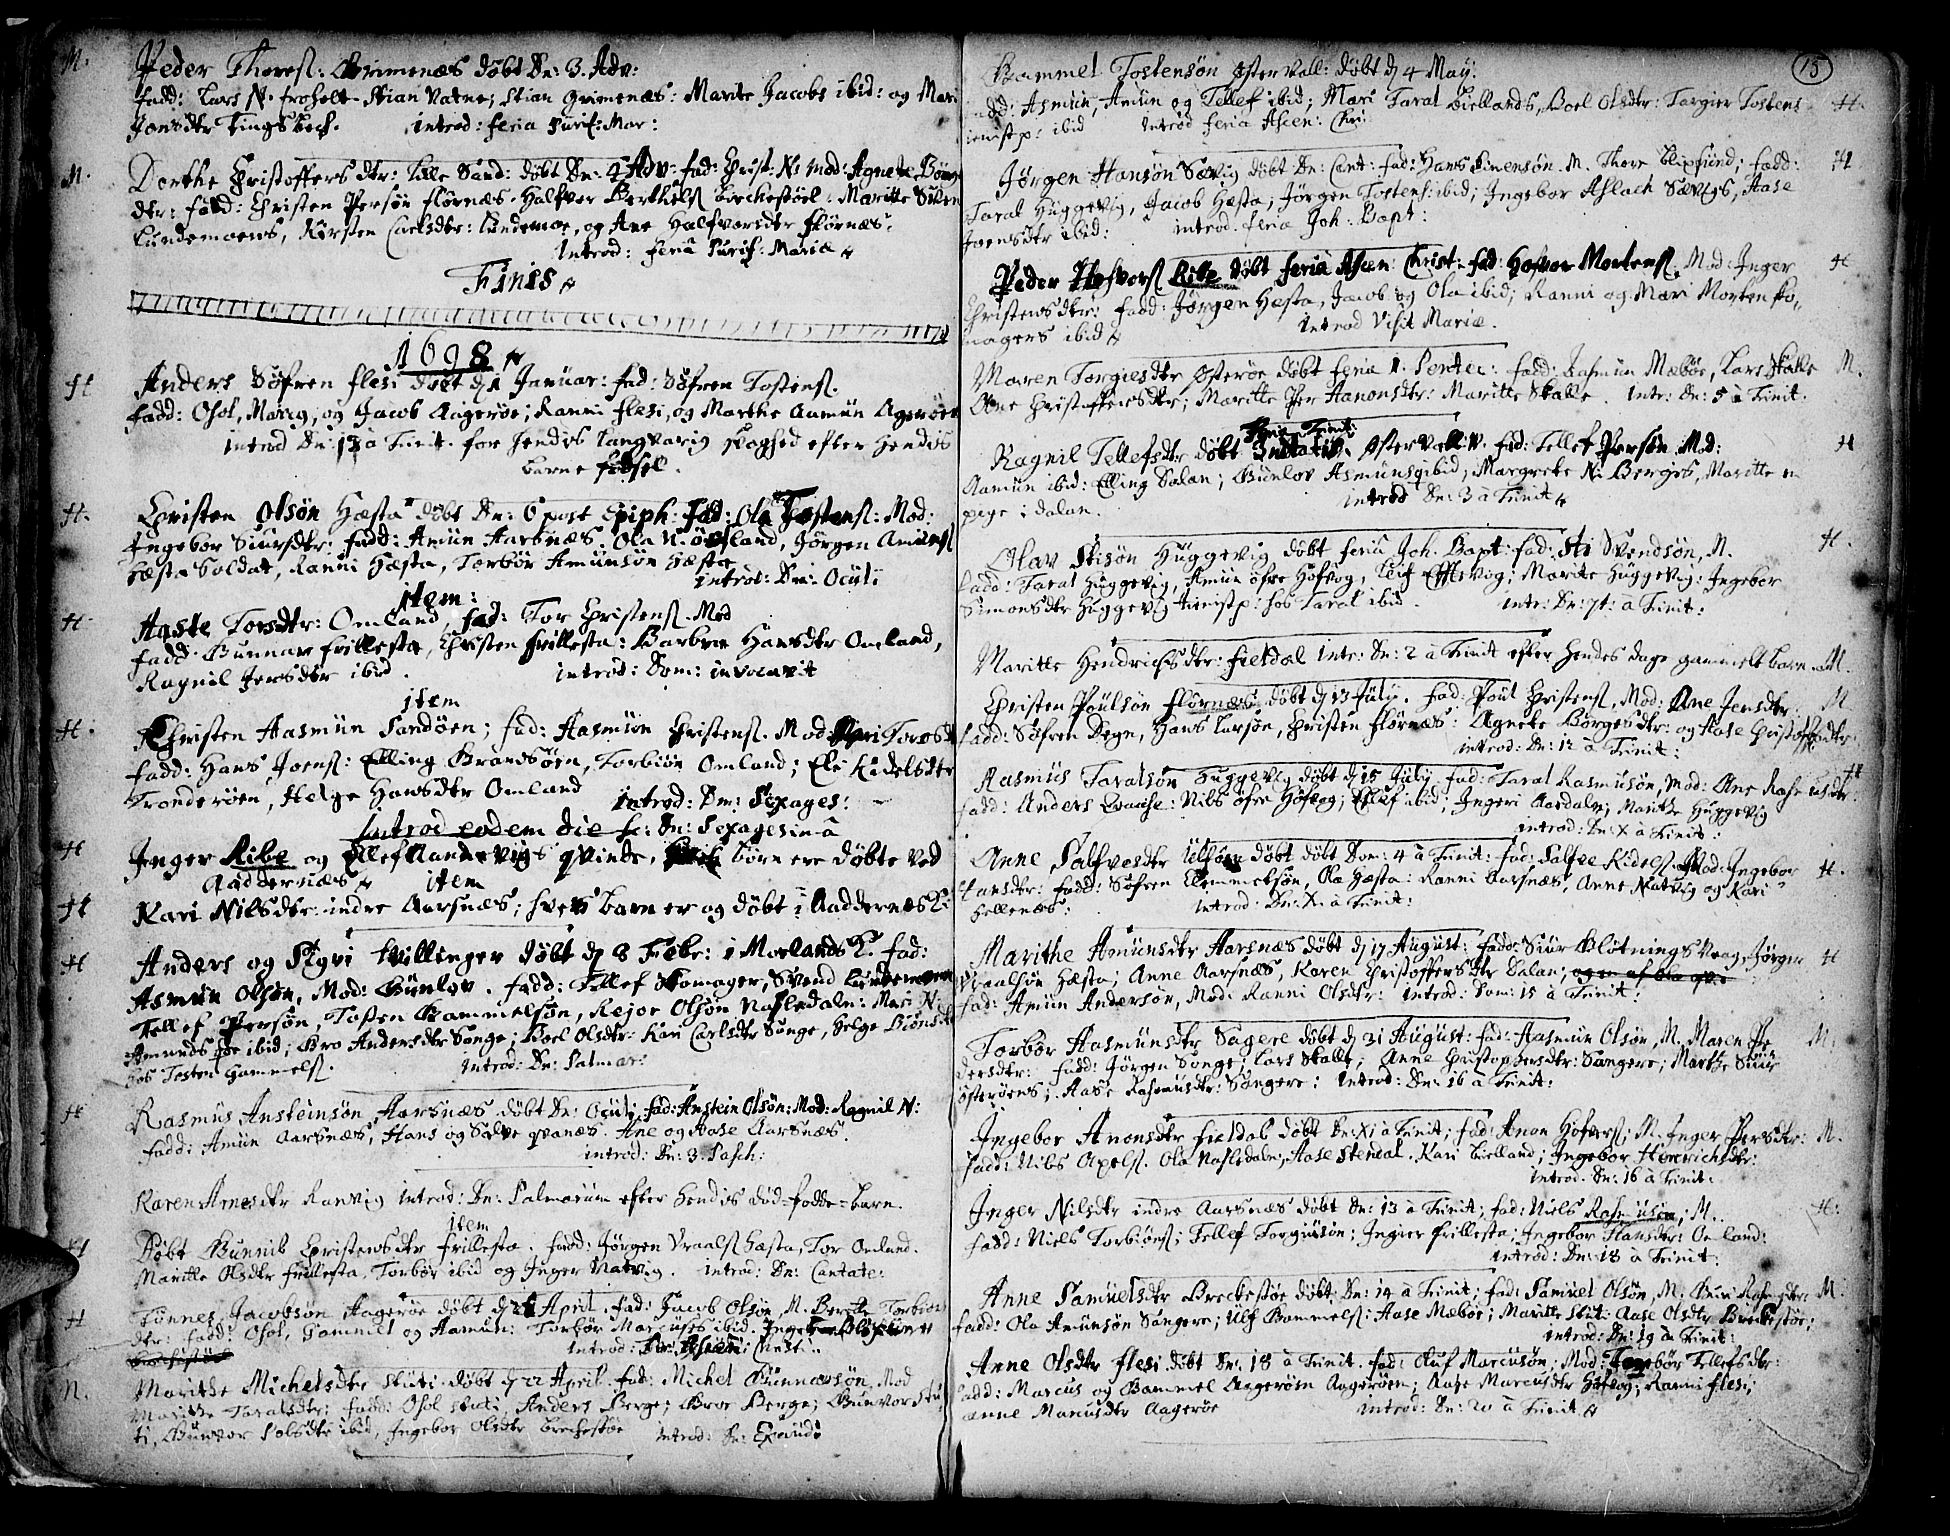 M. Peder Thores: Grimenæs døbt Dn: 3. Adv:
fadd: Lars N. froholt Stian Vatne; Stian Grimenæs: Marite Jacobs ibid: og Mari
Jonsdtr Tingsbech. introd: feria Purif: Mar:
M. Dorthe Christoffersdtr: Lille Sand: døbt Dn: 4 Adv: fad: Christ: N: Mod: Agnete Børges
dtr: fadd: Christen Persøn flørnæs. Halfvor Berthels brechestøel: Maritte Siven
Lundemoens, Kirsten Carlsdtr: Lundemoe, og Ane Halfvorsdtr flørnæs:
Introd: feria Purif: Mariæ
Finis
1698
H Anders Søfren flesi døbt d 1 Januar: fad: Søfren Tostens.
fadd: Osol, Mari, og Jacob Aagerøe; Ranni flesi, og Marthe Aamun Agerøen
introd Dn: 13 à Trinit. for hendis langvarig svaghed efter hendis
barne fødsel.
H. Christen Olsøn Hæsta døbt Dn: 6 post Epiph: fad: Ola Tostens: Mod:
Ingebor Siursdtr: fadd: Amun Aarsnæs. Ola N. øfland, Jørgen Amuns
Hæsta Soldat, Ranni Hæsta, Torbør Amunsøn Hæsta
introd: Dni: Oculi
item:
H Aaste Torsdtr: Omland, fad: Tor Christens. Mod
fadd Gunnar frillesta, Christen frillesta: Barbra Hansdtr Omland,
Ragnil Jensdtr ibid. introd: Dom: invocavit
item
H. Christen Aasmun Sandøen; fad: Aasmun Christens. Mod Mari Torsd
fadd: Hans Joens: Elling Brandsøen, Torbiøn Omland; Eli Kidelsdtr
Tronderøen, Helge Hansdtr Omland introd: Dn: Sexages:
Introd eodem die sc: Dn: Sexagesima
H Inger Ribe og Ellef Nandevigs qvinde, børn ere døbte ved
Aaddernæs item
H Kari Nilsdtr: indre Aarsnæs; hvis barn er og døbt i Aaddernæs K:
H Anders og Sigri tvillinger døbt d 8 Febr: i Morlands K. fad:
Asmun Olsøn, Mod: Gunlov. fadd: Tellef Skomager, Svend Lundemoen
Tellef Persøn, Tosten Gammelsøn, Rejor Olsøn Nasledaln: Mari N:
Amunds søe ibid; Bro Andersdtr Songe; Boel Olsdtr: Kari Carlsdtr Songe, Helge Biønsdtr
hos Tosten Gammels. introd: Dn: Palmar:
H Rasmus Ansteinsøn Aarsnæs døbt Dn: Oculi fad: Anstein Olsøn: Mod: Ragnil N:
fadd: Amun Aarsnæs, Hans og Salve qvanæs. Ane og Aase Aarsnæs.
introd: Dn: 3. Pasch:
Karen Arnesdtr Ranvig introd: Dn: Palmarum efter hendis død-fødde-barn.
item
H Døbt Gunnil Christensdtr frillesta. fadd: Jørgen Vraals Hæsta, Tor Omland.
Maritte Olsdtr frillesta, Torbør ibid og Inger Natvig. introd: Dn: Cantate:
H Tønnes Jacobsøn Aagerøe døbt d 28 April. fad: Jacob Olsøn, M. Berete Torbiøns
dtr: fadd: Osol, Gammel og Aamun: Torbør Marcuses ibid.
introd: Fer: Ascen: Christi.
M. Marithe Michelsdtr Stuti døbt d 22 April. fad: Michel Gunnarsøn, Mod
Maritte Taralsdtr; fadd: Osol Stuti, Anders Berge; Broe Berge; Gunvor Stu
ti, Gunvor Solsdtr ibid, Ingebor Olsdtr brechestøe introd: Dn: Exaudi
15
Gammel Tostensøn østervall: døbt d 4 May:
fadd: Asmun, Amun og Tellef ibid; Mari Taral Bielland, Boel Olsdtr: Torgier Tostens H.
tienistp: ibid introd feria Ascen: Chri
Jørgen Hansøn Sævig døbt Dn: Cant: fad: Hans Simensøn. M. Thore Blixsund; fadd: H
Taral Huggevig, Jacob Hæsta, Jørgen Tostens: ibid; Ingebor Aslach Sævigs, Aase
Joensdtr ibid: introd. feria Joh: Bapt:
Peder Hofvors Kille døbt feria Ascen: Christ: fad: Hofvor Mortens, Mod: Inger H
Christensdtr: fadd: Jørgen Hæsta, Jacob og Ola ibid; Ranni og Mari Morten sko,,
magers ibid introd Visit Mariæ.
Maren Torgiesdtr østerøe døbt feria 1. Pentec: fadd: Rasmun Mæbøe, Lars Skalle M.
Ane Christoffersdtr; Maritte Per Aanonsdtr: Maritte Skalle. Intr: Dn: 5 à Trinit:
Ragnil Tellefsdtr døbt feria Trinit: østervell: fad: Tellef Persøn Mod: H
Aamun ibid: Elling Dalan; Gunlov Asmuns ibid; Margrete N: Berges, Maritte en
pige i dalan. introd Dn: 3 à Trinit
Olav Stisøn Huggevig døbt feria Joh. Bapt: fad: Sti Svendsøn, M. H.
fadd: Taral Huggevig, Amun øfre Høfvog, Leif Eftevog; Maritte Huggevig: Ingebor
Simonsdtr Huggevig tienistp: hos Taral ibid. Intr: Dn: 7t: à Trinit:
Maritte Hendrichsdtr: fieldal Intr: Dn: 2 à Trinit efter hendes dage gammelt barn. M.
Christen Poulsøn flørnæs døbt d 13 July. fad: Poul Christens, Mod: Ane Jensdtr. M
fadd: Søfren Degn, Hans Larsøn, Christen flørnæs: Agnete Børgesdtr: og Aase Christoffersdtr
introd: Dn: 12 à Trinit:
Rasmus Taralsøn Huggevig døbt d 15 July. fad: Taral Rasmusøn, Mod: Ane Rasmusdtr: H
fadd: Anders Qvaase: Nils øfre Høfvog; Ellef ibid; Ingeri Aasdaln; Maritte Huggevig
introd: Dn: X à Trinit:
Anne Salfvesdtr Ulføen døbt Dom: 4 à Trinit: fad: Salfve Kidels. Mod: Ingebor H.
Hansdtr: fadd: Søfren Clemmetsøn, Ola Hæsta: Ranni Aarsnæs, Anne Natvig og Kari
Hellenæs: introd: Dn: X à Trinit:
Marithe Amunsdtr Aarsnæs døbt d 17 August: fadd: Siur Bløtnings Vraag, Jørgen H
Vraalsøn Hæsta; Anne Aarsnæs, Karen Christoffersdtr Dalan;
fad: Amun Andersøn, Mod: Ranni Olsdtr: introd: Dom: 15 à Trinit:
Torbør Aasmunsdtr Sagere døbt d 31 August: fad: Aasmun Olsøn, M. Maren Pe M:
dersdtr: fadd: Jørgen Songe, Lars Skalle; Anne Christophersdtr: Sangere; Marthe Siur
østerøens; Aase Rasmusdtr: Sangere; introd: Dn: 16 à Trinit:
Ingebor Anonsdtr fieldal døbt Dn: XI à Trinit; fad: Anon Hofvors; M. Inger Persdtr: M.
fadd: Nils Apels. Ola Nasledaln, Aase Stendal. Kari Bielland; Ingebor Hinrichsdtr:
introd. Dn: 16 à Trinit:
Inger Nilsdtr indre Aarsnæs døbt Dn: 13 à Trinit; fad: Niels Rasmusøn; M. H:
fadd: Niels Torbiøns; Tellef Torgiusøn; Ingier frillesta; Ingebor Hansdtr: Omland:
introd: Dn: 18 à Trinit:
Anne Samuelsdtr Breckestøe døbt Dn: 14 à Trinit; fad: Samuel Olsøn, M: Guri Rasmusdtr: M.
fadd: Ola Amunsøn Sangere; Ulf Gammels: Aase Mæbøe; Maritte Stuti: Aase Olsdtr Breckestøe;
introd: Dn: 19 à Trinit:
Anne Olsdtr flesi døbt Dn: 18 à Trinit. fad: Oluf Marcusøn; Mod: Torebør Tellefsdtr:
fadd: Marcus og Gammel Aagerøen Aagerøen; Aase Marcusdtr Høfvog; Ranni flesi;
anne Manusdtr Aagerøe introd: Dn: 20 à Trinit